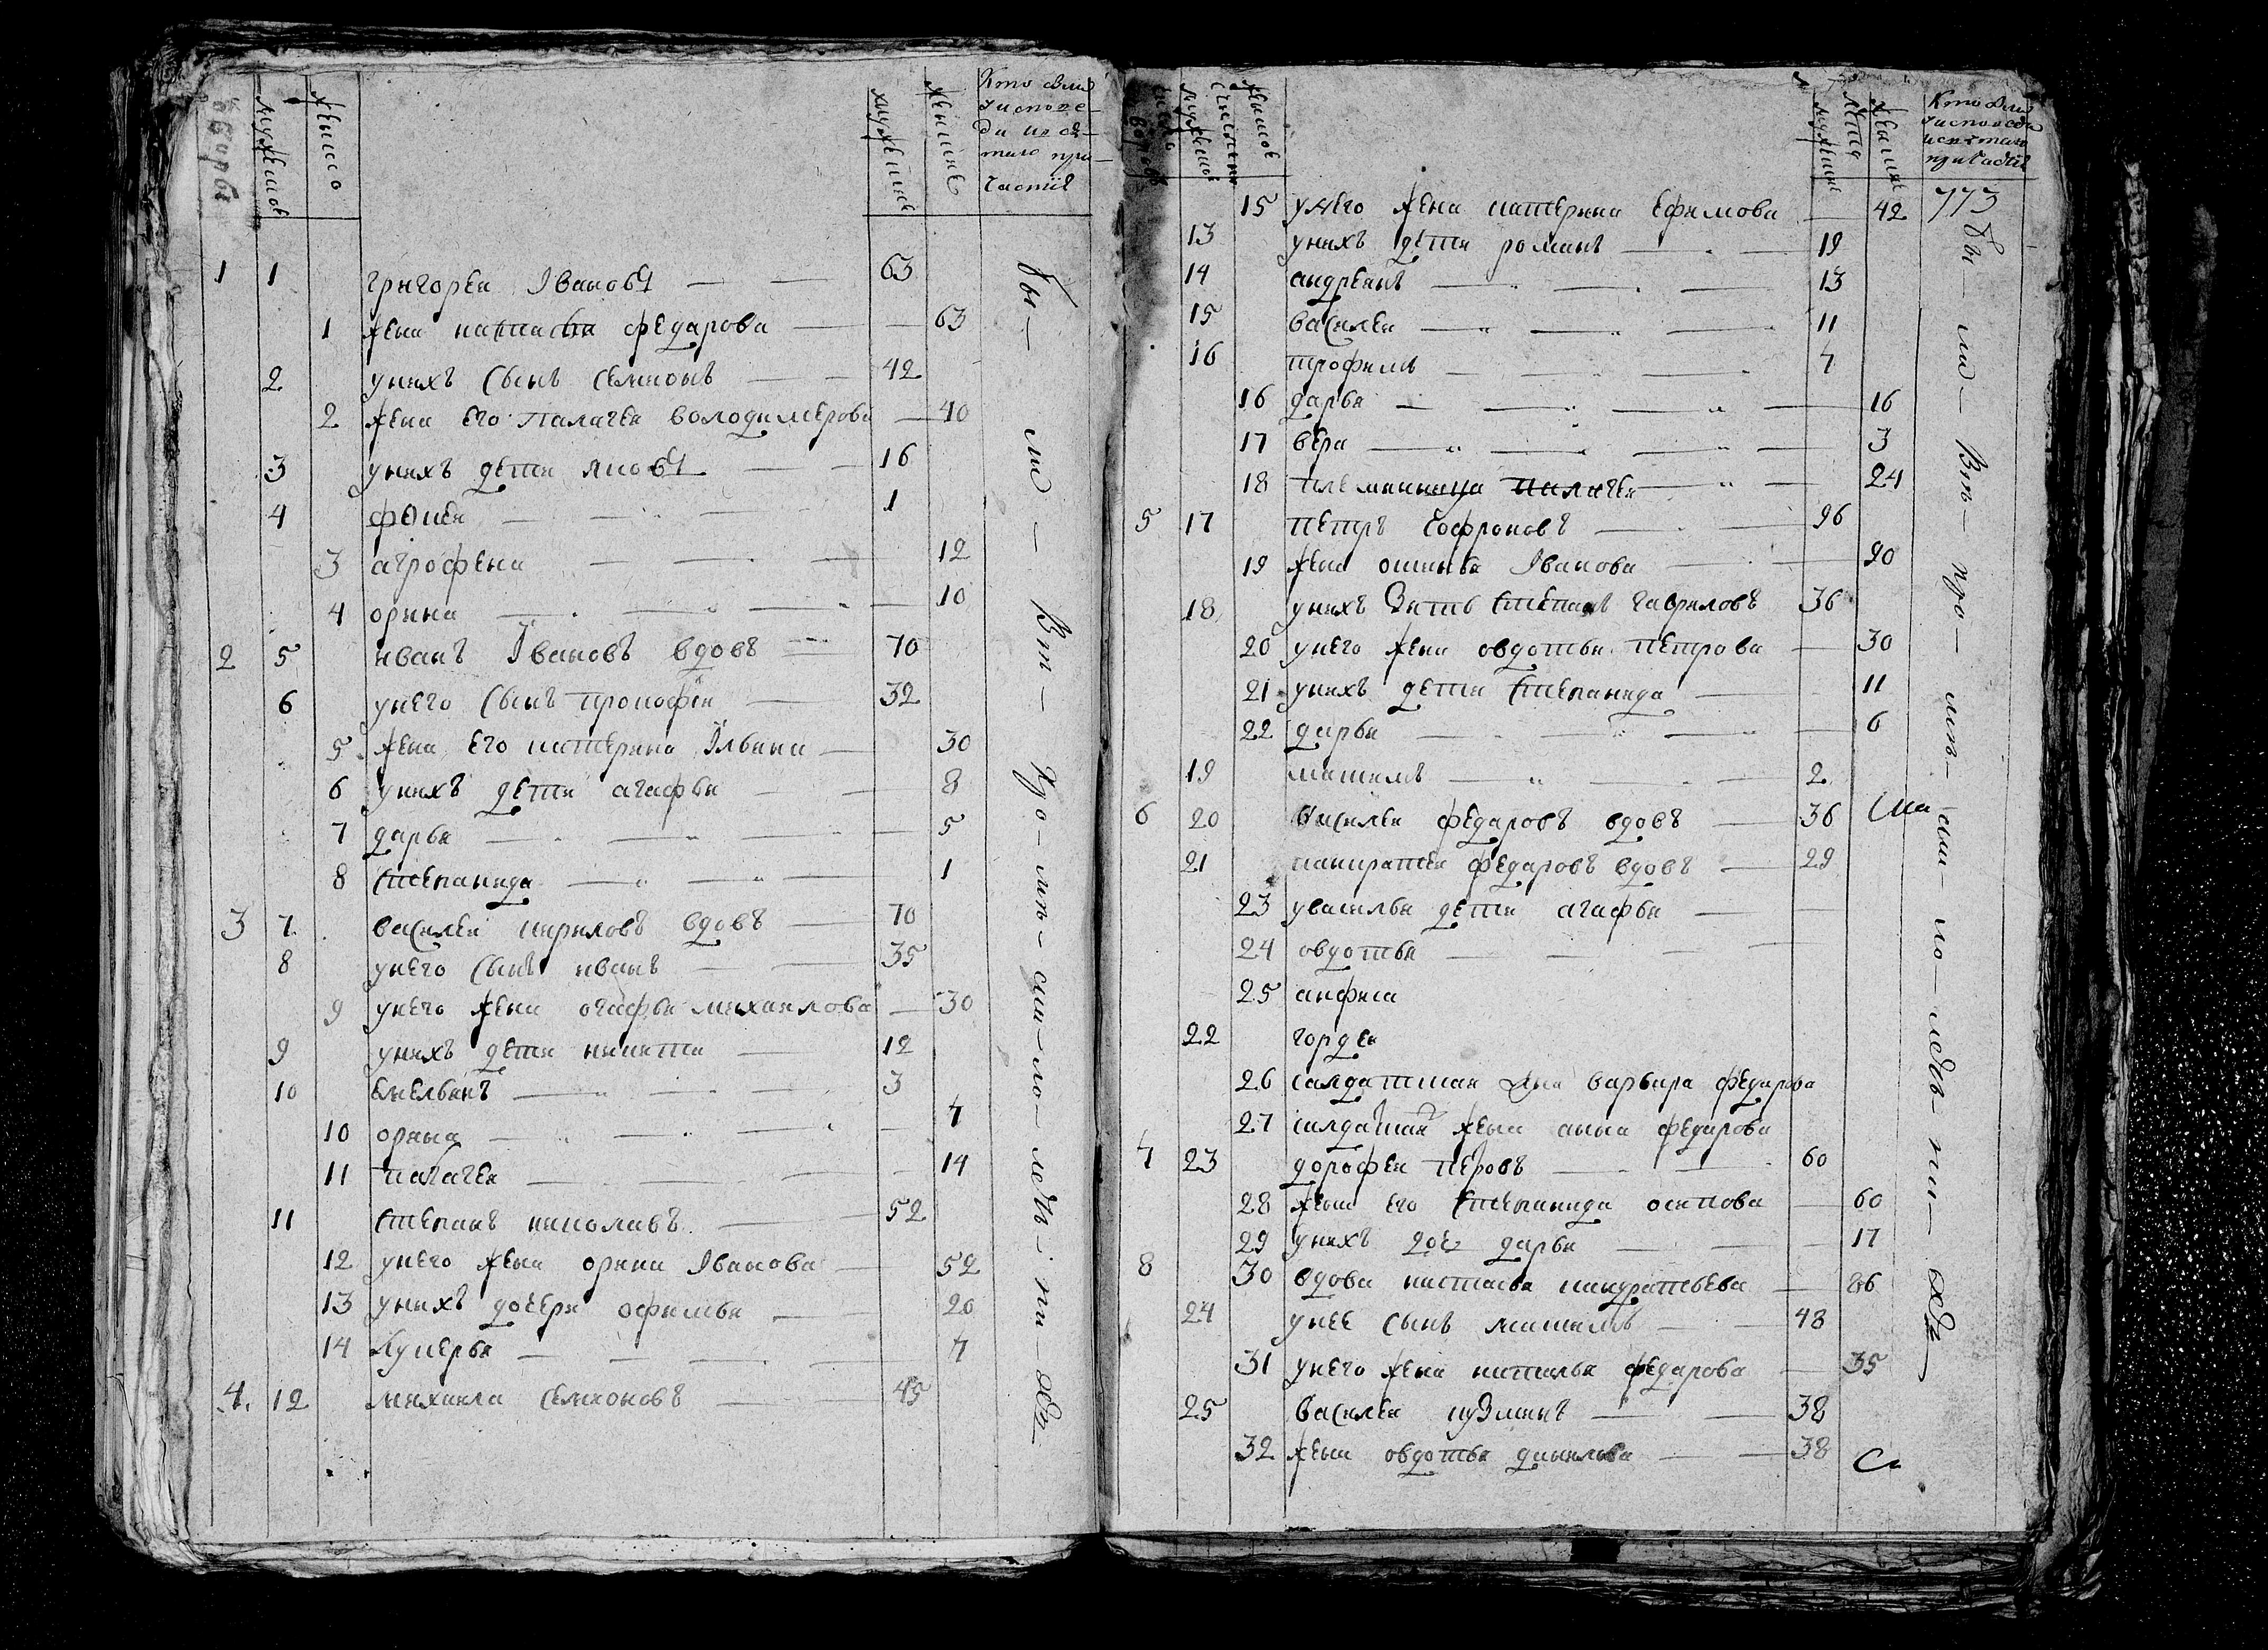 дворы мужеска женско мужеска женска Кто были
у испове-
ди и св-
таго при-
частиѣ
1 1 григореи Івановъ — — 63
1 жена настасья федарова — — 63
2 унихъ сынъ семионъ — — 42
2 жена его палагея володимерова — 40
3 унихъ дети яковъ — — 16
4 фокеи — — — 1
3 агрофена — — — 12
4 орина — — — — 10
2 5 иванъ Івановъ вдовъ — 70
6 унего сынъ прокофеи — 32
5 жена его катерина Ільина — 30
6 унихъ дети агафья — — 8
7 дарья — — — — 5
8 степанида — — — 1
3 7 василеи кириловъ вдовъ — 70
8 унего сынъ иванъ — — 35
9 унего жена огафья михаилова — 30
9 унихъ дети никита — 12
10 емельянъ — — — 3
10 орина — — — — 7
11 палагея — — — 14
11 степанъ николавъ — 52
12 унего жена орина Іванова — 52
13 унихъ дочери офимья — 20
14 лукерья — — — — 7
4 12 михаила семионовъ — 45
бы — ли — Вт —
мужеска женска лета мужеска женска Кто были
у исповеди
и святаго
причастиѣ
773
15 унего жена катерина ефимова — 42
13 унихъ дети романъ — — 19
14 андреянъ — — — 13
15 василеи — — — 11
16 трофимъ — — — 7
16 дарья — — — — 16
17 вера — — — — 3
18 племянница палагея — — 24
5 17 петръ софроновъ — — 96
19 жена Іванова — — 90
18 унихъ зять степанъ гавриловъ 36
20 унего жена овдотья петрова — 30
21 унихъ дети степанида — — 11
22 дарья — — — — 6
19 максимъ — — — 2
6 20 василеи федаровъ вдовъ — 36
21 панкратеи федаровъ вдовъ — 29
23 увасилья дети агафья — —
24 овдотья — — —
25 анфиса
22 гордеи
26 салдатская варвара федарова
27 салдатская жена анна федарова
7 23 дорофеи петровъ — — 60
28 жена его степанида осипова — 60
29 унихъ дочь дарья — — 17
8 30 вдова настасья панкратьева — 86
24 унее сынъ максимъ — — 48
31 унего жена наталья федарова — 35
25 василеи кузминъ — — 38
32 жена овдотья данилова — — 38
бы — ли — Вт —